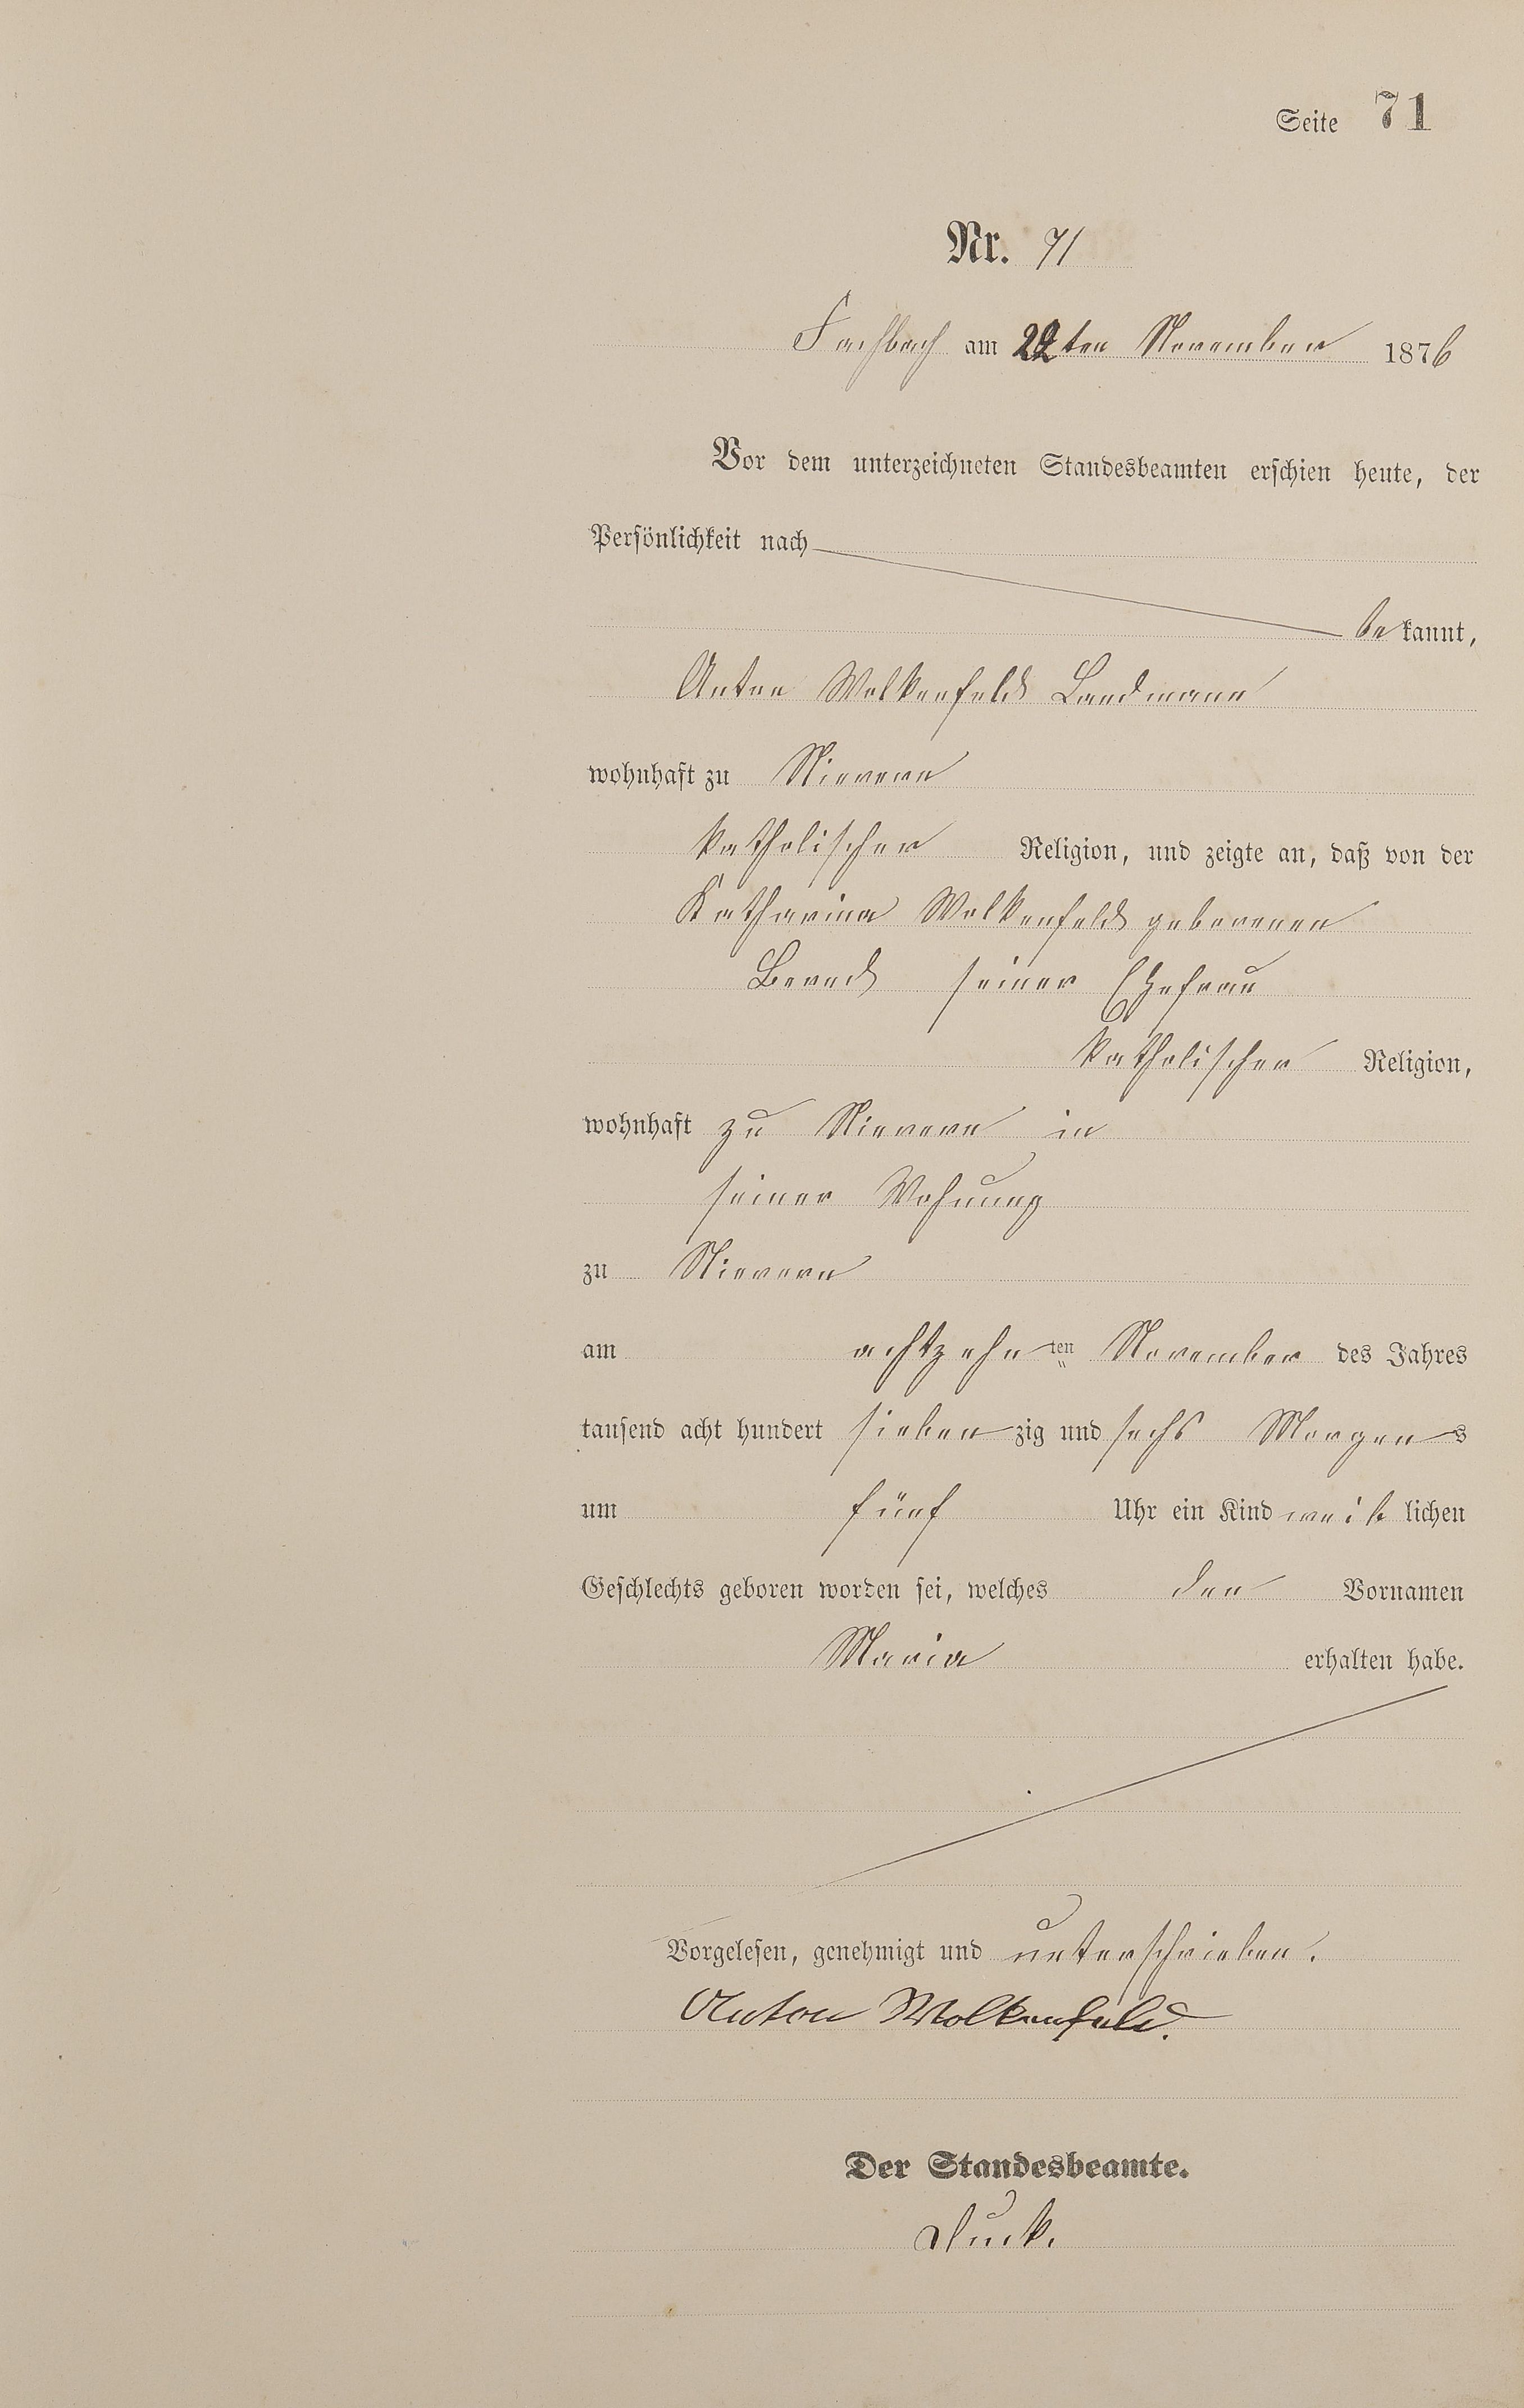 Seite 71
Nr. 71
Fachbach am 22ten November 1876
Vor dem unterzeichneten Standesbeamten erschien heute, der
Persönlichkeit nach
bekannt,
Anton Wolkenfeld Landmann
wohnhaft zu Nievern
katholischer Religion, und zeigte an, daß von der
Katharina Wolkenfeld geborenen
seiner Ehefrau
katholischer Religion,
wohnhaft zu Nievern in
seiner Wohnung
zu Nievern
am achtzehnten November des Jahres
tausend acht hundert siebenzig und sechs Morgens
um fünf Uhr ein Kind weiblichen
Geschlechts geboren worden sei, welches den Vornamen
Maria erhalten habe.
Vorgelesen, genehmigt und unterschrieben.
Anton Wolkenfeld.
Der Standesbeamte.